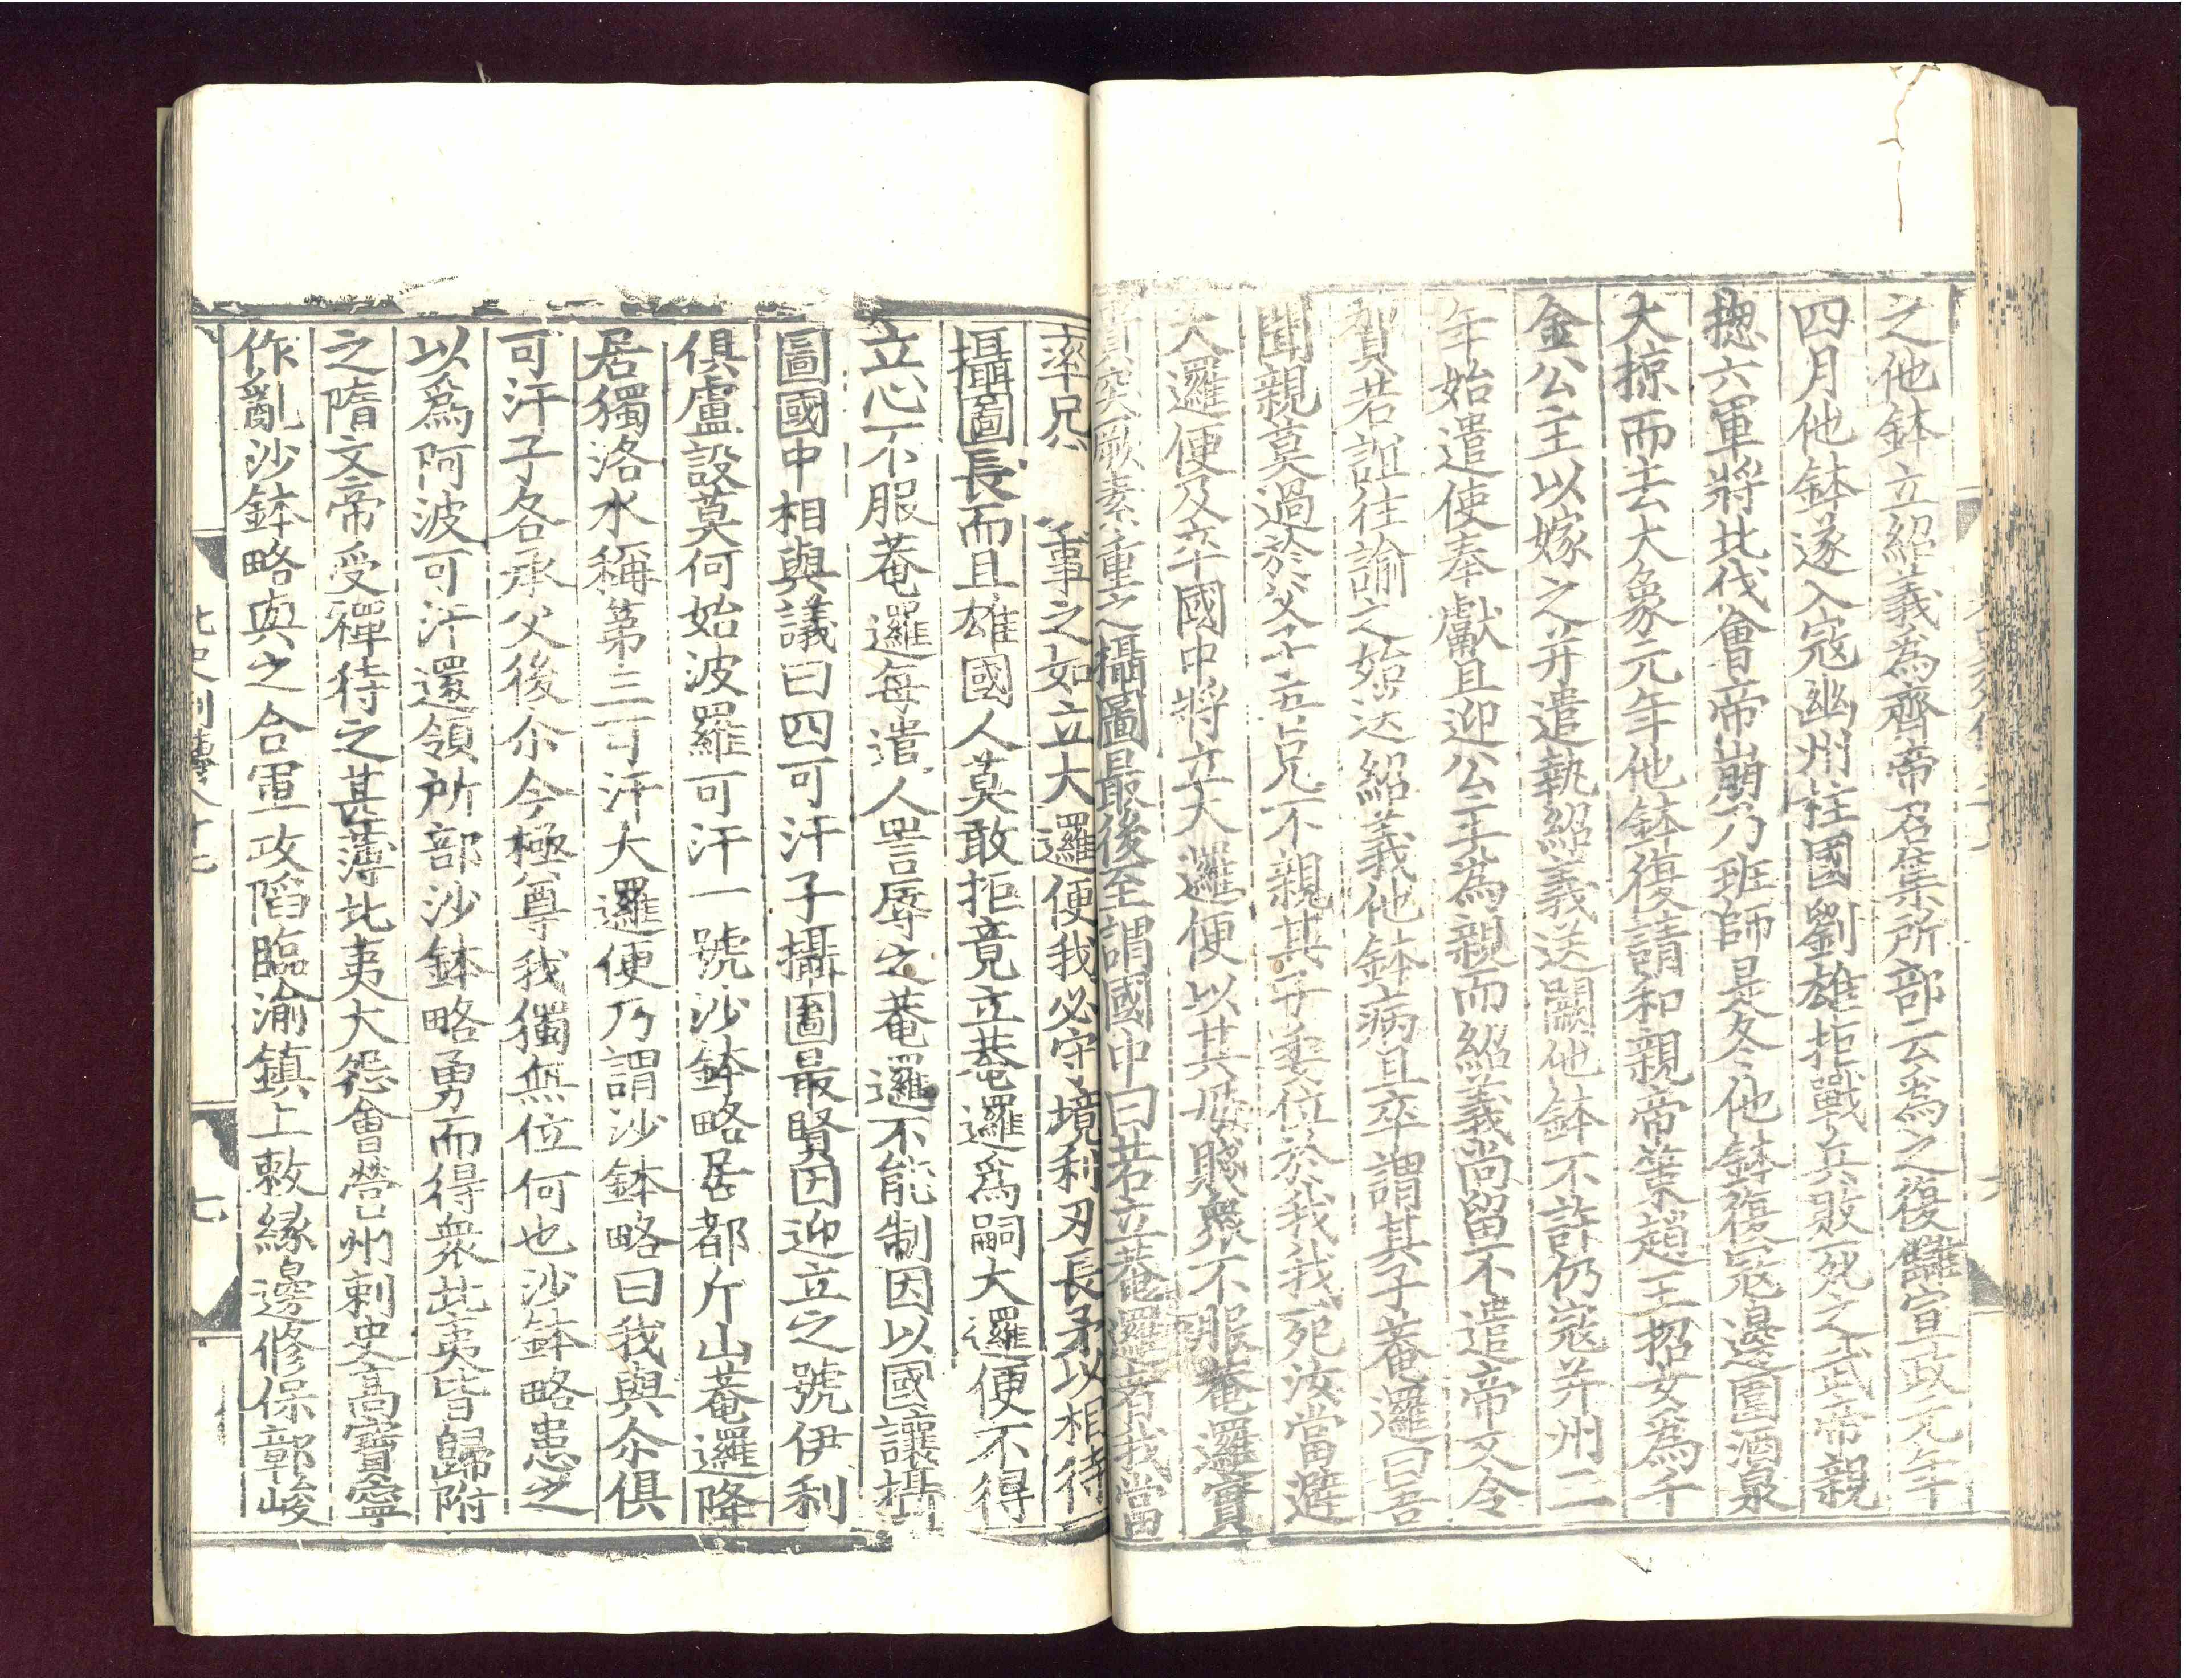 之他鉢立紹義為齊帝召集所部云為之復讎宣政元年
四月他鉢遂入寇幽州柱國劉雄拒戰兵敗死之武帝親
揔六軍將北伐會帝崩乃班師是冬他鉢復寇邊圍酒泉
大掠而去大象元年他鉢復請和親帝策趙王招女為千
金公主以嫁之并遣執紹義送闕他鉢不許仍寇并州二
年始遣使奉獻且迎公主為親而紹義尚留不遣帝又令
賀若誼往諭之始送紹義他鉢病且卒謂其子菴邏曰吾
聞親莫過於父子吾兄不親其子委位於我我死汝當避
大邏便及卒國中將立大邏便以其母賤衆不服菴邏實
貴突厥素重之攝圖最後至謂國中曰若立菴邏者我當
率兄 事之如立大邏便我必守境利刃長矛以相待
攝圖長而且雄國人莫敢拒竟立菴邏爲嗣大邏便不得
立心不服菴邏每遣人詈辱之菴邏不能制因以國讓攝
圖國中相與議曰四可汗子攝圖最賢因迎立之號伊利
俱盧設莫何始波羅可汗一號沙鉢略居都斤山菴邏降
居獨洛水稱第二可汗大邏便乃謂沙鉢略曰我與尒俱
可汗子各承父後尒今極尊我獨無位何也沙鉢略患之
以爲阿波可汗還領所部沙鉢略勇而得衆北夷皆歸附
之隋文帝受禪待之甚薄北夷大怨會營州刺史高寶寧
作亂沙鉢略與之合軍攻陷臨渝鎮上敕緣邊修保鄣峻
北史列傳八十七
七